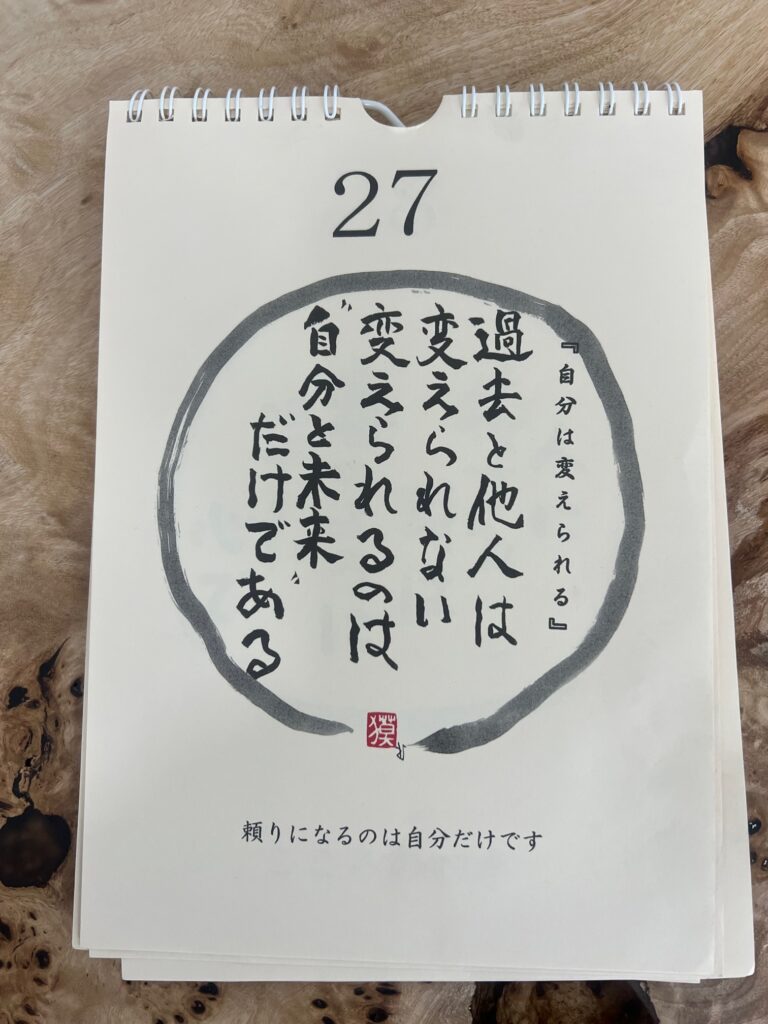 27
『自分は変えられる』
過去と他人は
変えられない
変えられるのは
自分と未来
だけである
獏
頼りになるのは自分だけです